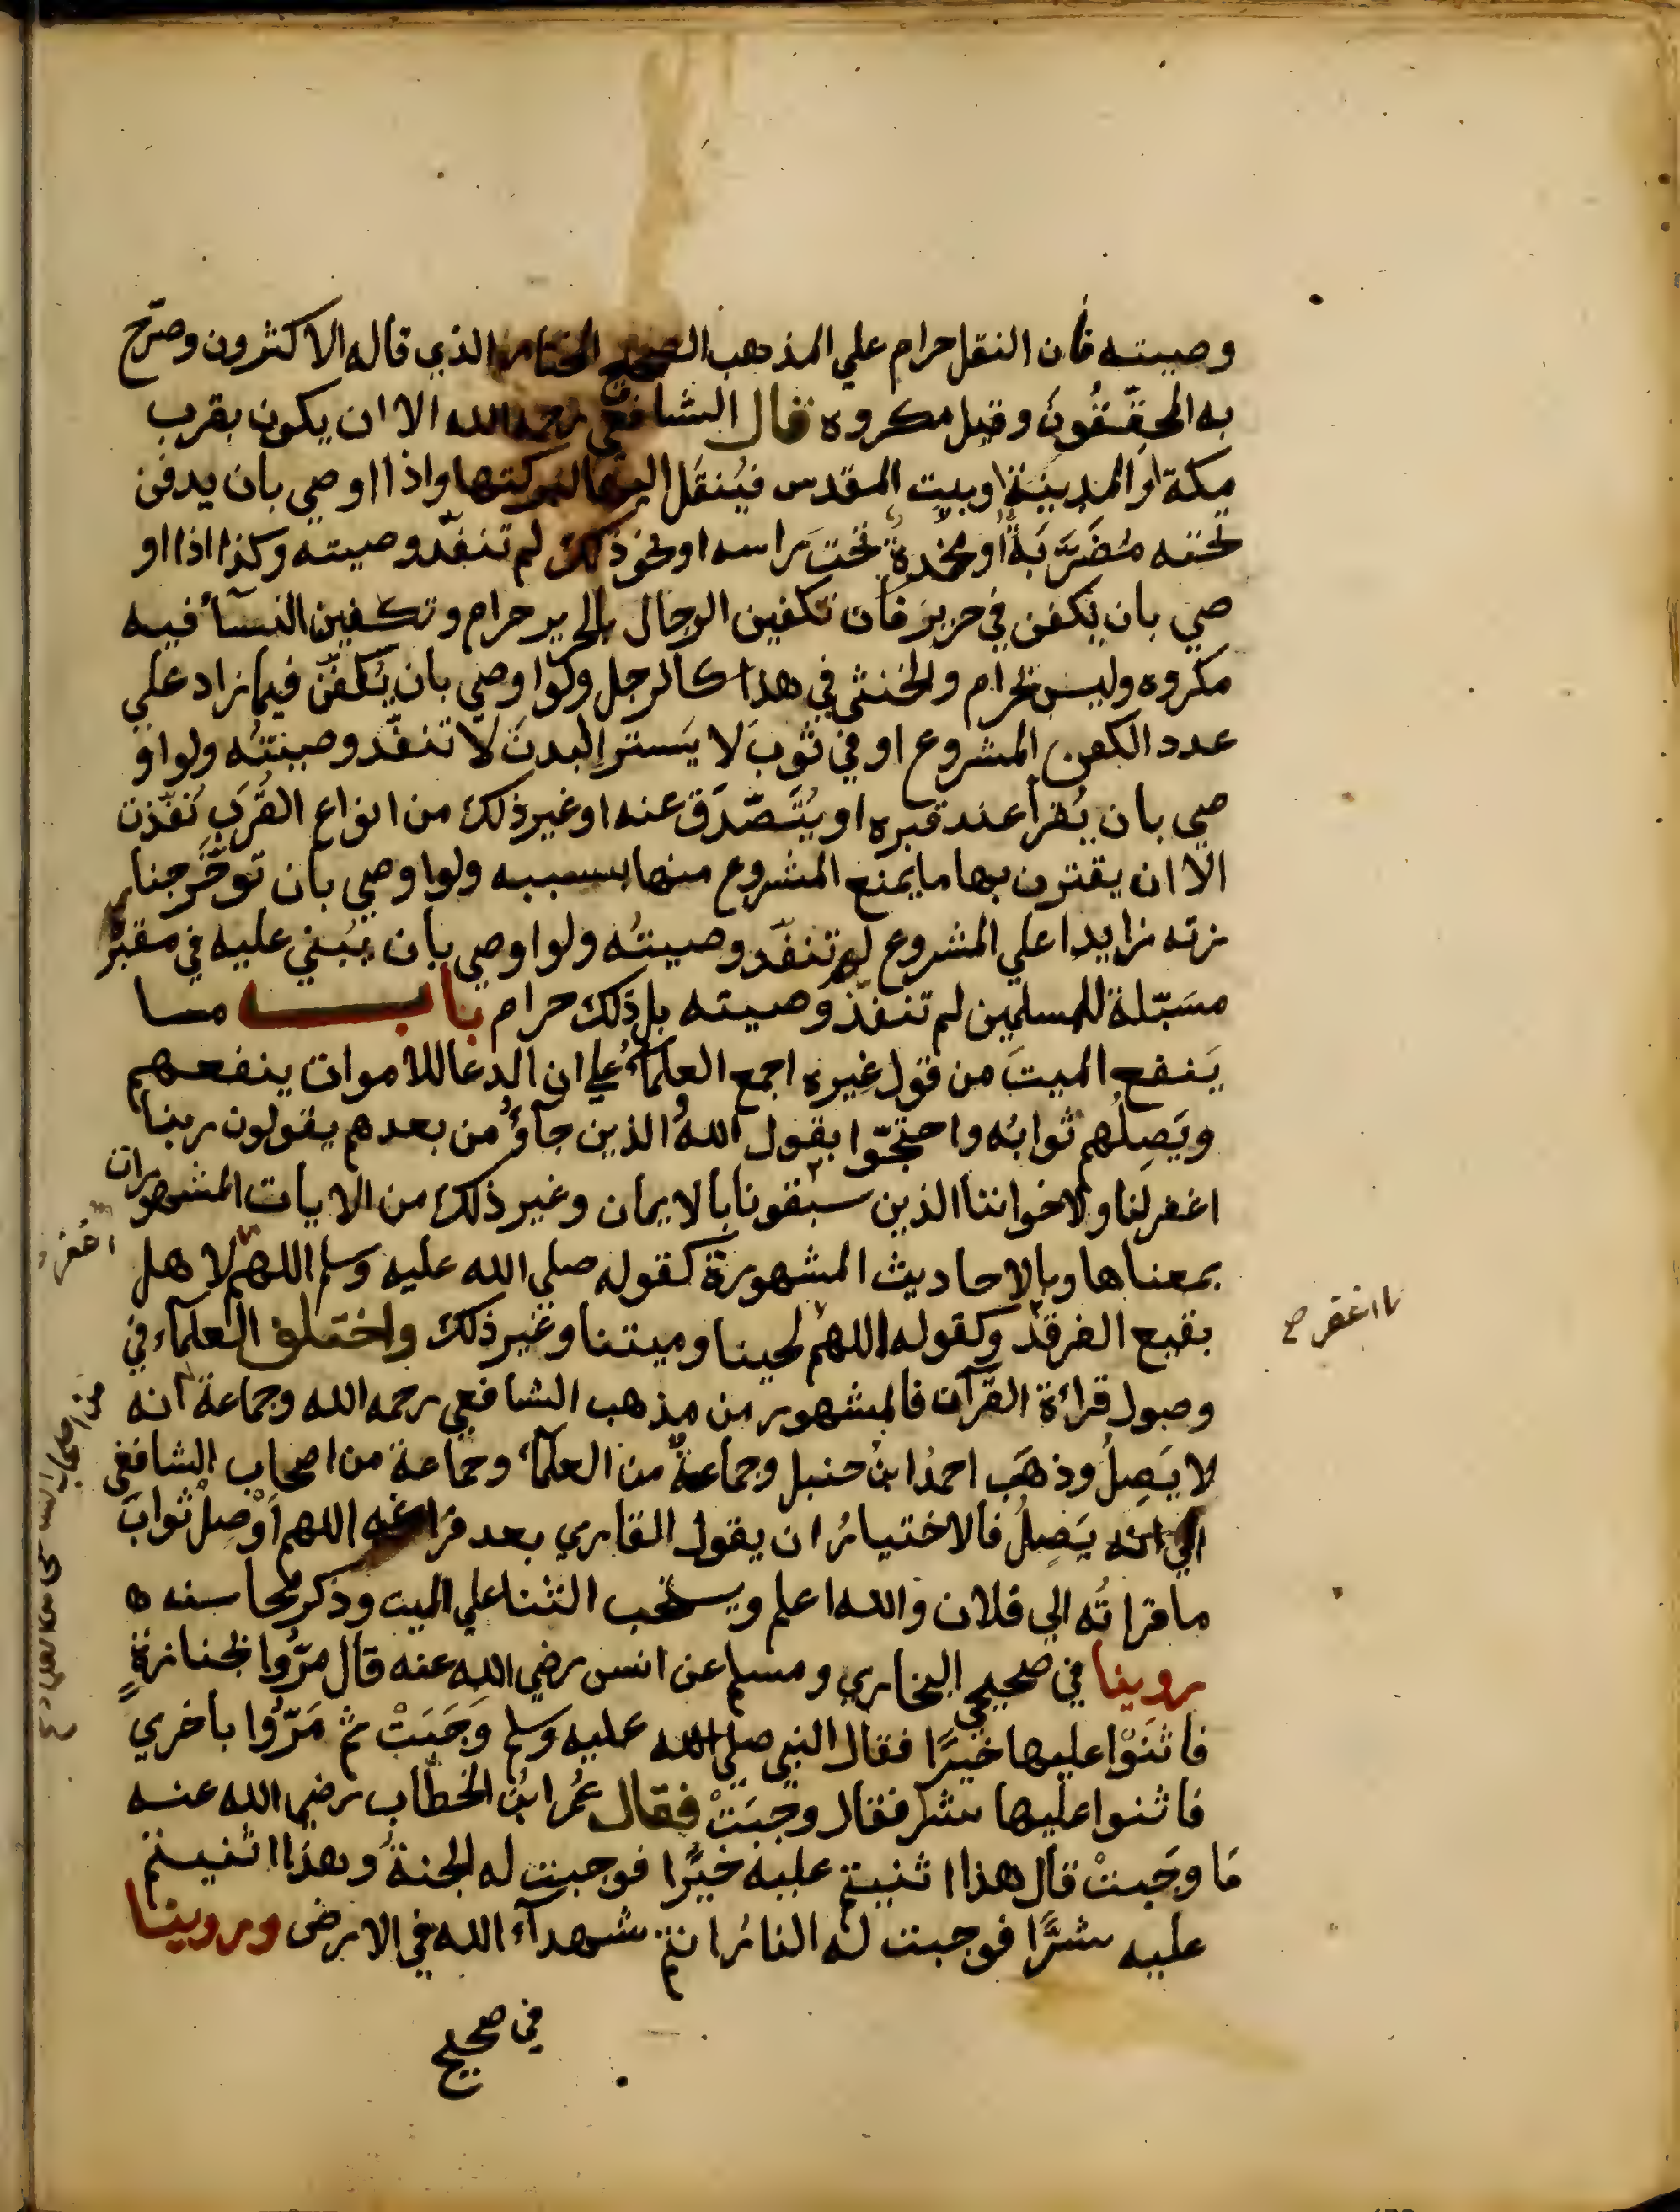 وصيته فان النقل حرام علي المذهب الصحيح المختار الذي قاله الاكثرون وصرّح
به المحقِّقُونَ وقيل مكروه قال الشافعي رحمه الله الا ان يكون بقرب
مكة او المدينة او بيت المقدس فيُنقَل اليها لبركتها واذا اوصي بان يدفن
تحته مُضَرَّبَة او مخدة تحتَ راسه او نحو ذلك لم تنفّذ وصيته وكذا اذا او
صي بان يكفن في حرير فان تكفين الرجال بالحرير حرام وتكفين النسآء فيه
مكروه وليس بحرام والخنثي في هذا كالرجل ولو اوصي بان يُكفّن فيما زاد علي
عدد الكفن المشروع او في ثوب لا يَستر البدنَ لا تنفّذ وصيتُه ولو او
صي بان يُقرأ عند قبره او يُتَصّدَق عنه او غير ذلك من انواع القُرَبِ نُفّذت
الا ان يقترن بها ما يمنع المشروع منها بسببه ولو اوصي بان توخَّر جنا
زته زايدا علي المشروع لم تنفّذ وصيتُه ولو اوصي بان يُبني عليه في مقبرَة
مسَبّلة للمسلمين لم تنفّذ وصيته بل ذلك حرام باب ما
يَنفع الميتَ من قول غيره اجمع العلمآءُ علي ان الدعا للاموات ينفعهم
ويَصِلُهم ثوابُه واحتجّوا بقول اللهُ والذين جآؤُ من بعدهم يقولون ربنا
اغفر لنا ولاخواننا الذين سبقونا بالايمان وغير ذلك من الايات المشهورات
بمعناها وبالاحاديث المشهورة كقوله صلي الله عليه وسلم اللهم لاهل
اغفر
بقيع الغرقد وكقوله اللهم لحينا وميتنا وغير ذلك واختلف العلمآء في
اغفر صح
وصول قراءة القرآن فالمشهور من مذهب الشافعي رحمه الله وجماعة انه
لا يَصِلُ وذهَب احمدُ ابنُ حنبل وجماعةٌ من العلمآء وجماعة من اصحاب الشافعي
من اصحاب
الي انه يَصِلُ فالاختيارُ ان يقول القاري بعد فراغه اللهم أوْصِلْ ثوابَ
ما قراتُه الي فلان والله اعلم ويستحب الثنا علي الميت وذكر محاسنه ه
روينا في صحيحي البخاري ومسلم عن انس رضي الله عنه قال مرُّوا بجنازةٍ
فاثنَوْا عليها خيرًا فقال النبي صلي الله عليه وسلم وَجَبَتْ ثم مَرّوُا باخري
فاثنوا عليها شرا فقال وجبَتْ فقال عُمر ابنُ الخطّاب رضي الله عنه
مَا وجَبتْ قال هذا اثنيتم عليه خيرًا فوجبت له الجنةُ وهذا اثنيتم
عليه شرًّا فوجبت له النارُ انتم شهدآء الله في الارض وروينا
في صحيح